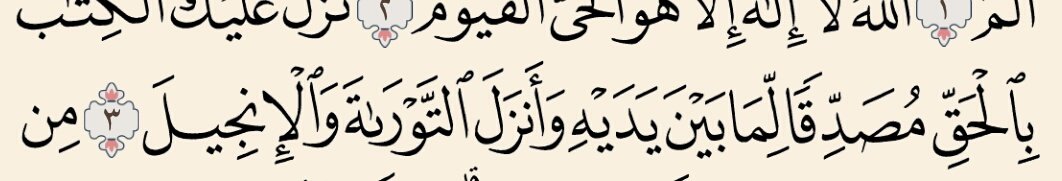 الٓمٓ ١ ٱللَّهُ لَآ إِلَٰهَ إِلَّا هُوَ ٱلْحَىُّ ٱلْقَيُّومُ ٢ نَزَّلَ عَلَيْكَ ٱلْكِتَٰبَ
بِٱلْحَقِّ مُصَدِّقًا لِّمَا بَيْنَ يَدَيْهِ وَأَنزَلَ ٱلتَّوْرَىٰةَ وَٱلْإِنجِيلَ ٣ مِن